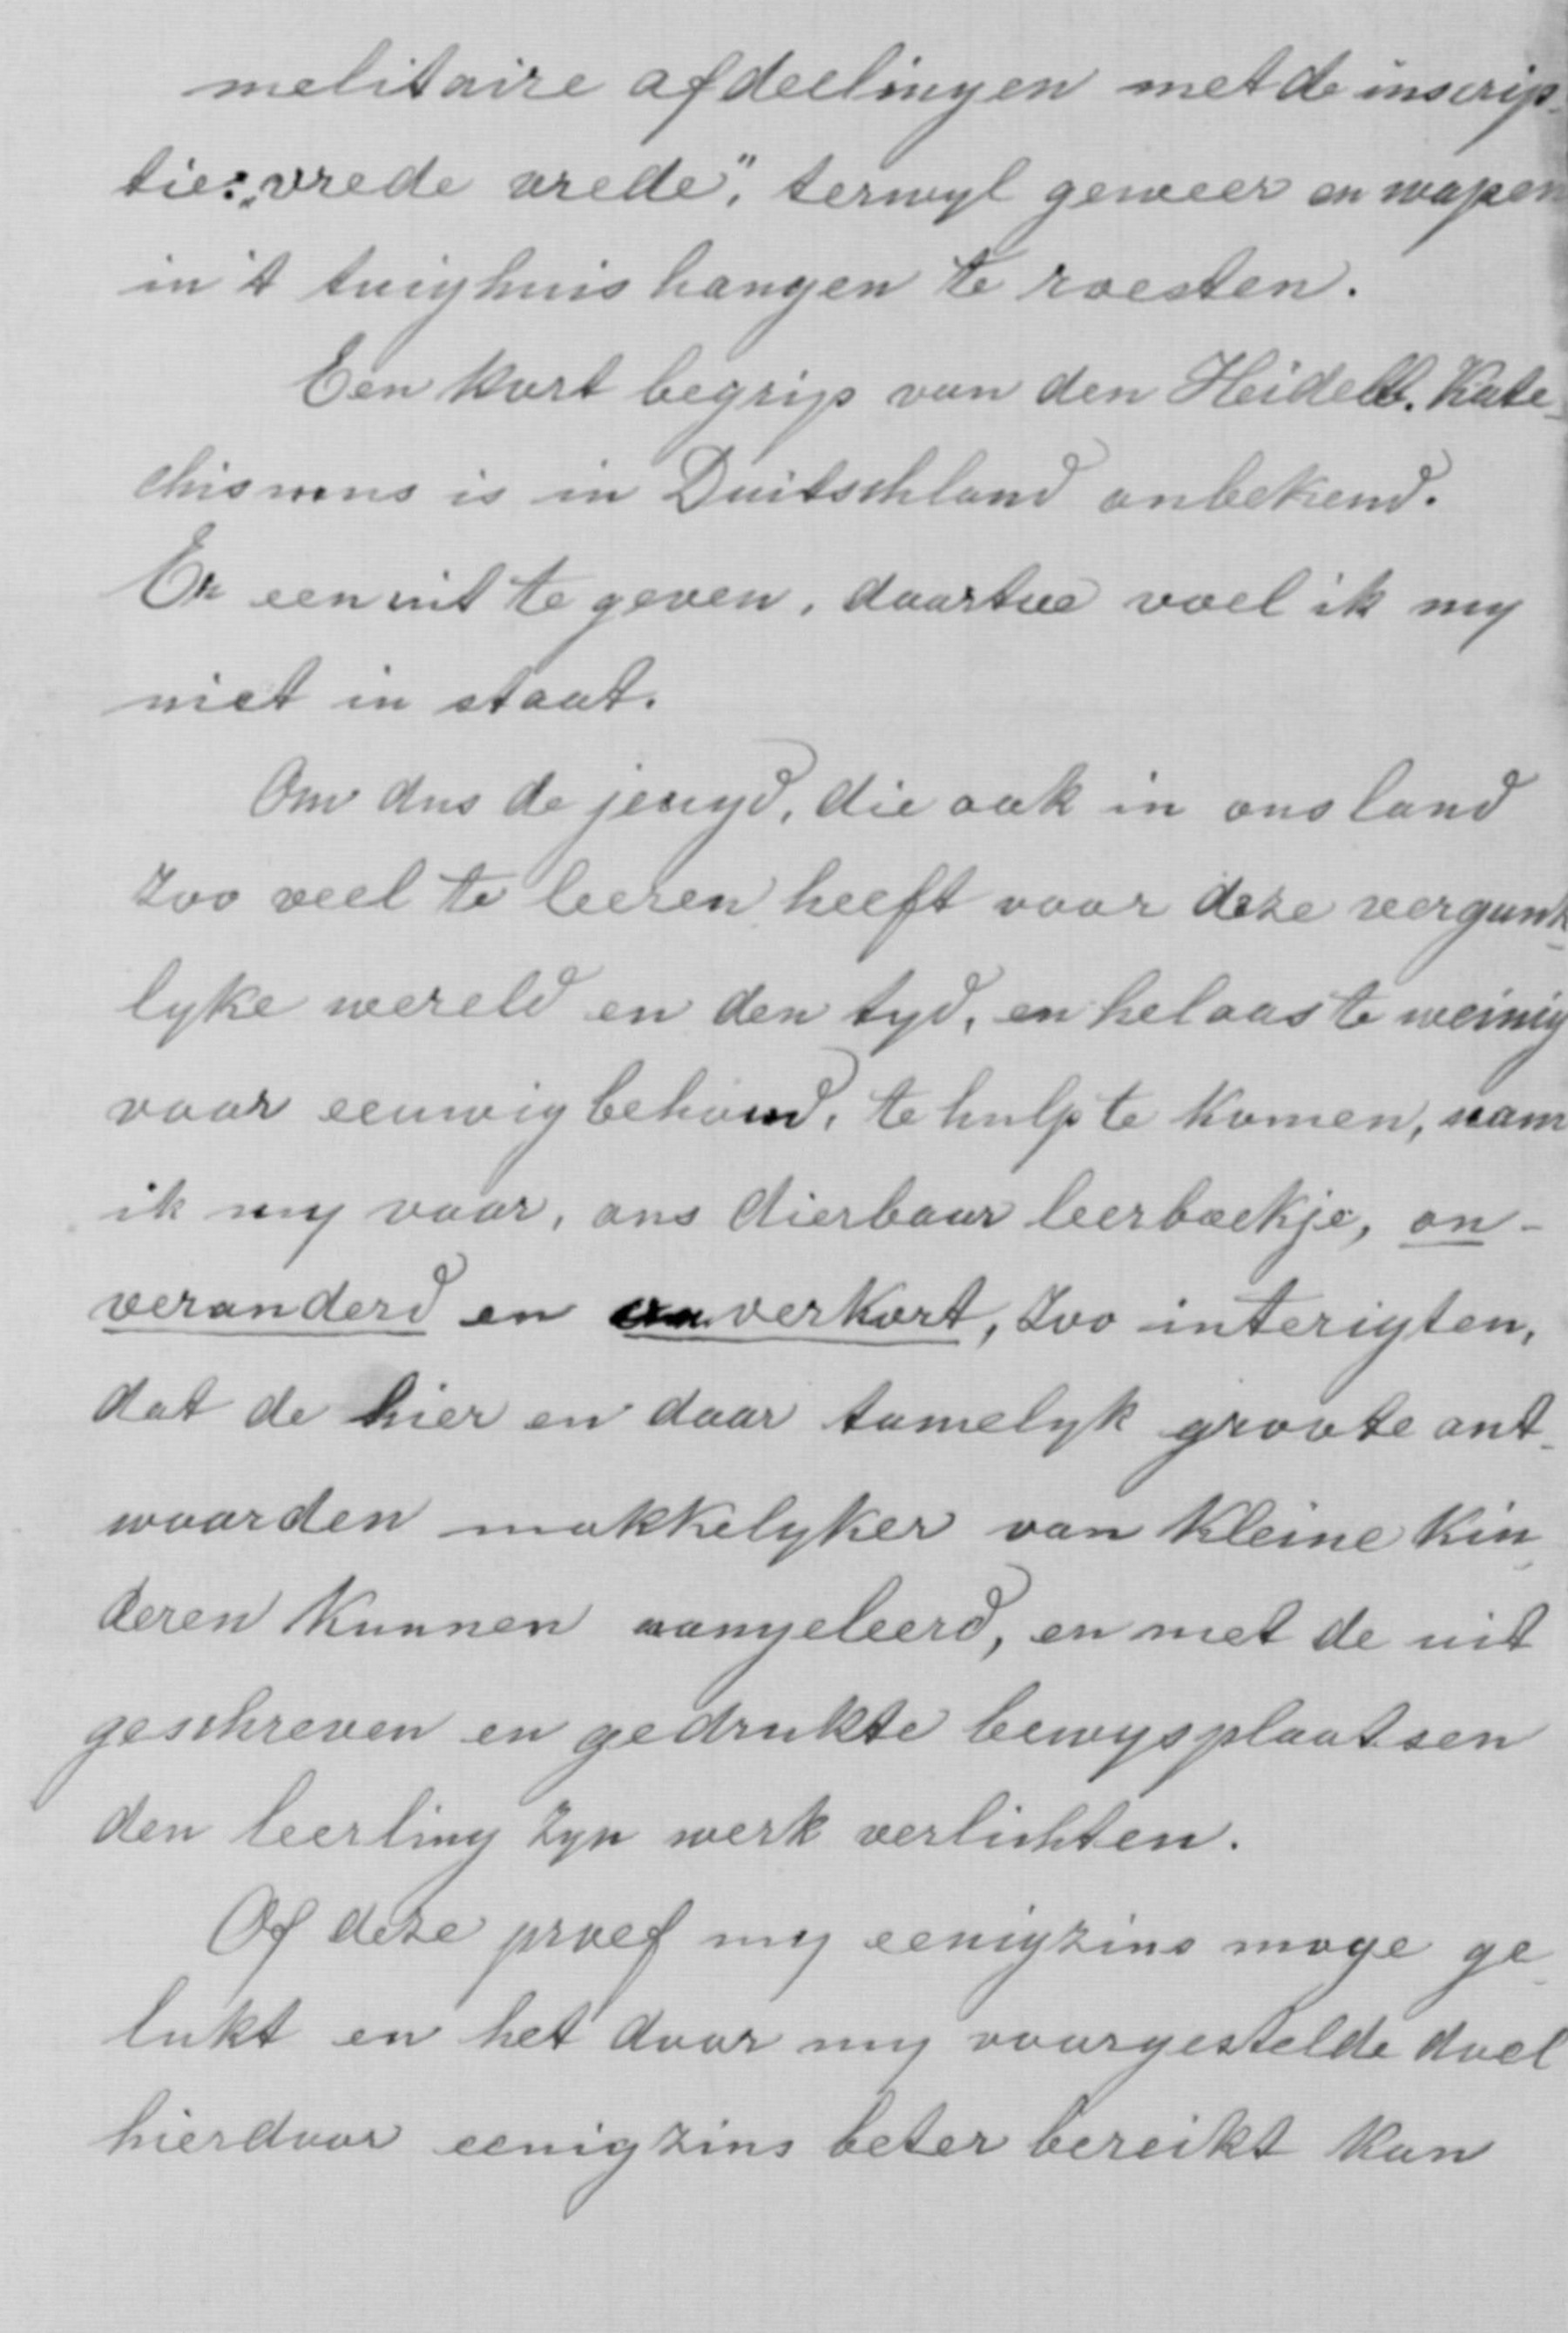 melitaire afdeelingen met de inscrip-
tie: „vrede vrede", terwyl geweer en wapen
in 't tuighuis hangen te roesten.
Een kort begrip van den Heidelb. Kate-
chismus is in Duitschland onbekend.
Er een uit te geven, daartoe voel ik my
niet in staat.
Om dus de jeugd, die ook in ons land
zoo veel te leeren heeft voor deze vergank-
lyke wereld en den tyd, en helaas te weinig
voor eeuwig behoud, te hulp te komen, nam
ik my voor, ons dierbaar leerboekje, on-
veranderd en onverkort, zoo interigten,
dat de hier en daar tamelyk groote ant-
woorden makkelyker van kleine kin-
deren kunnen aangeleerd, en met de uit
geschreven en gedrukte bewysplaatsen
den leerling zyn werk verlichten.
Of deze proef my eenigzins moge ge-
lukt en het door my voorgestelde doel
hierdoor eenigzins beter bereikt kan